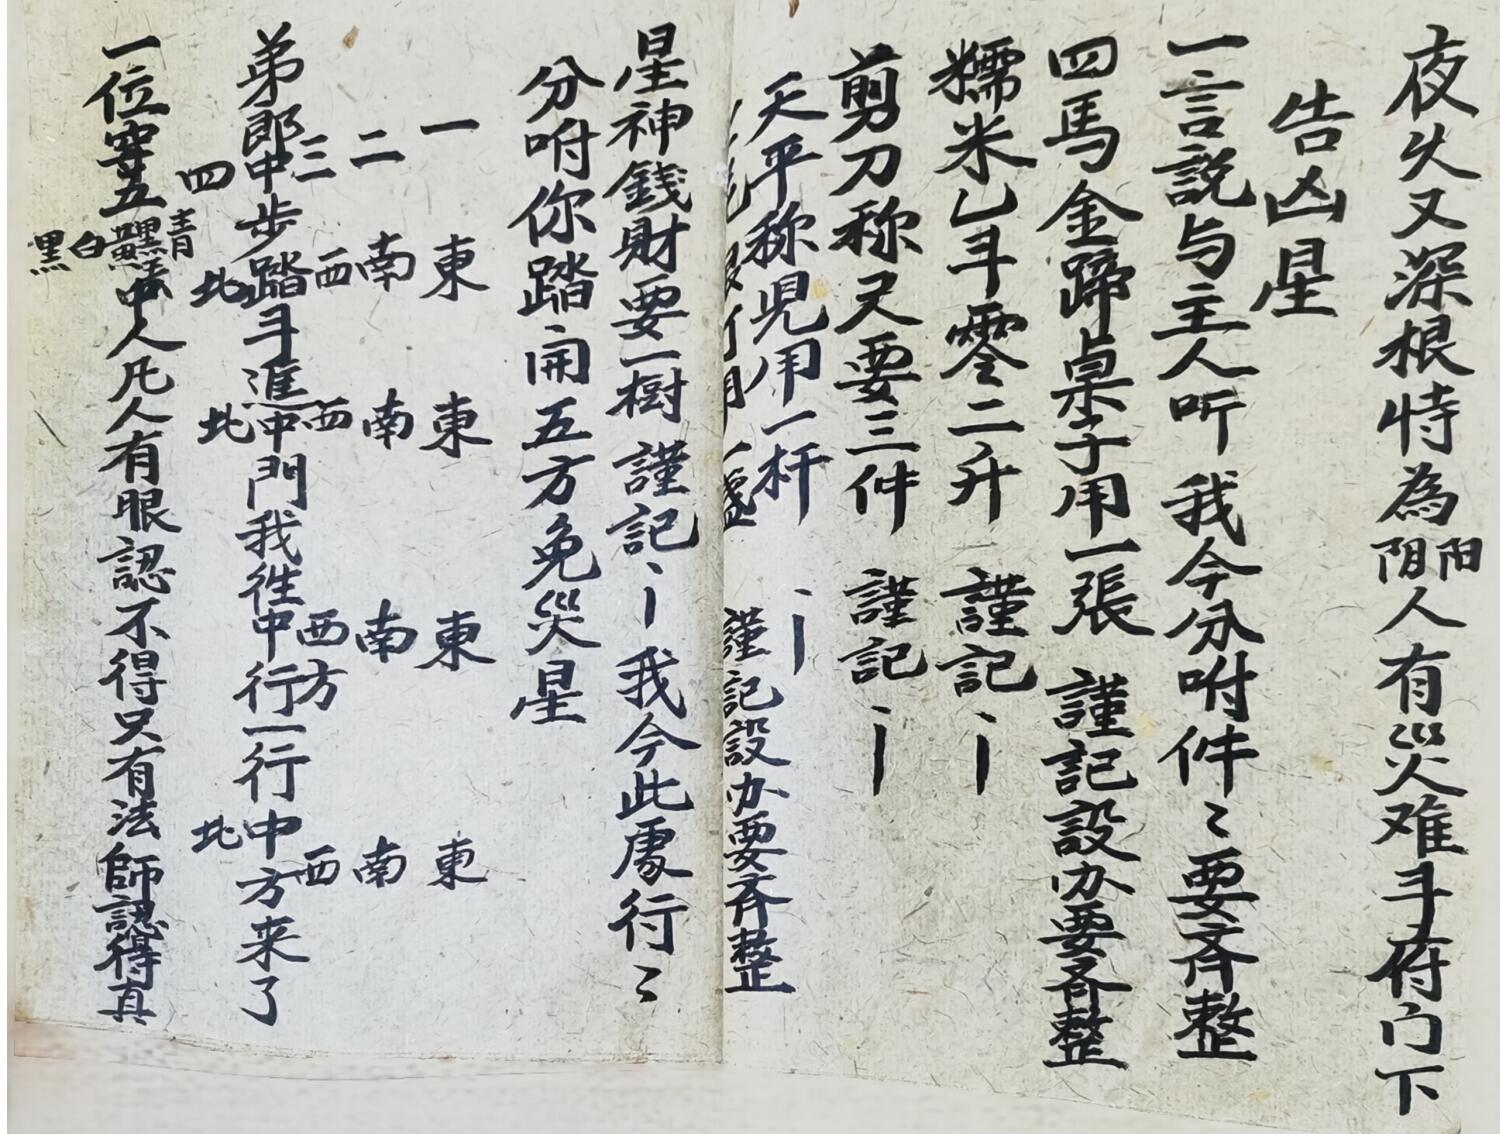 夜久又深根特為阳阴人有災难斗府门下
告凶星
一言説与主人听 我今分咐件〻要斉整
四馬金蹄桌子用一張 謹記設办要斉整
糯米乚斗零二升 謹記丶丨
剪刀称尺要三件 謹記丶丨
天平称児用一杆 丶丨
謹記設办要斉整
星神錢財要一樹 謹記丶丨我今此處行〻
分咐你踏開五方免災星
一 東 東 東 東
二 南 南 南 南
三 西 西 西方 西
四 北 北 北
弟郎中步踏斗進中門我往中行一行中方来了
一位穿五青白黑中人凡人有眼認不得只有法師認得真